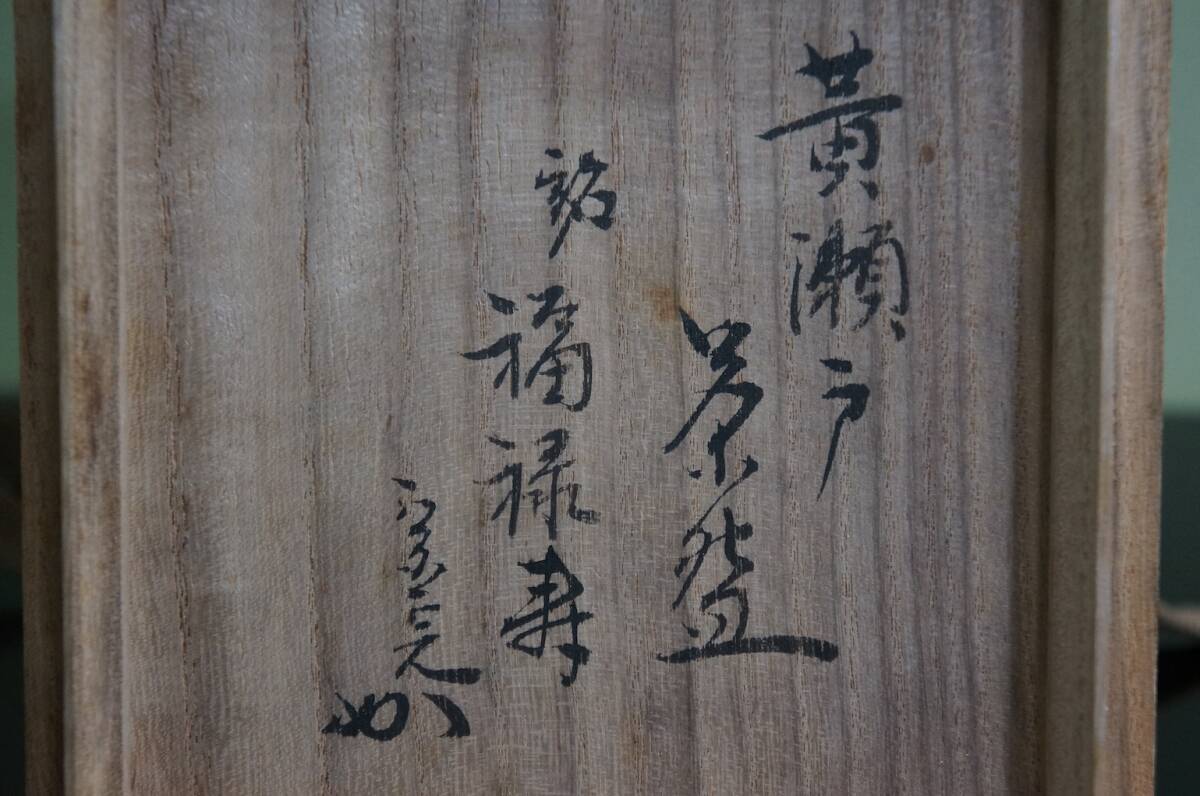 黄瀬戸
茶盌
銘
福禄寿